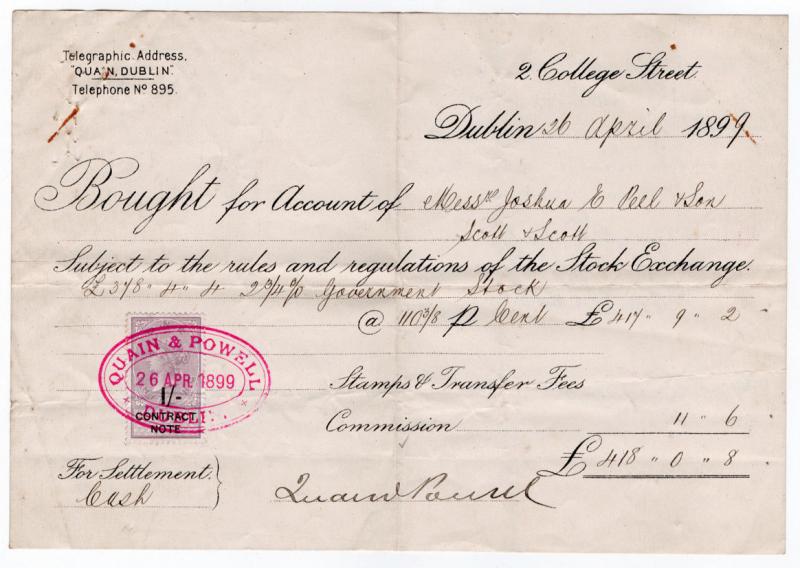 Telegraphic Address,
"QUAIN, DUBLIN".
Telephone No 895.
2. College Street.
Dublin 26 April 1899
Bought for Account of Messrs Joshua E Peel & Son
Scott & Scott
Subject to the rules and regulations of the Stock Exchange.
£378 " 4 " 4 2¾% Government Stock
@ 110⅜ p Cent £417 " 9 " 2
QUAIN & POWELL
26 APR. 1899
DUBLIN.
1/-
CONTRACT
NOTE
Stamps & Transfer Fees
Commission 11 " 6
£418 " 0 " 8
For Settlement.
Cash
Quain & Powell